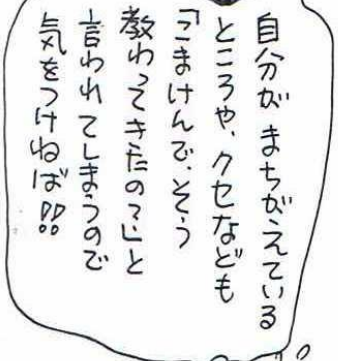 自分がまちがえている
ところや、クセなども
「こまけんで、そう
教わってきたの？」と
言われてしまうので
気をつけねば!!